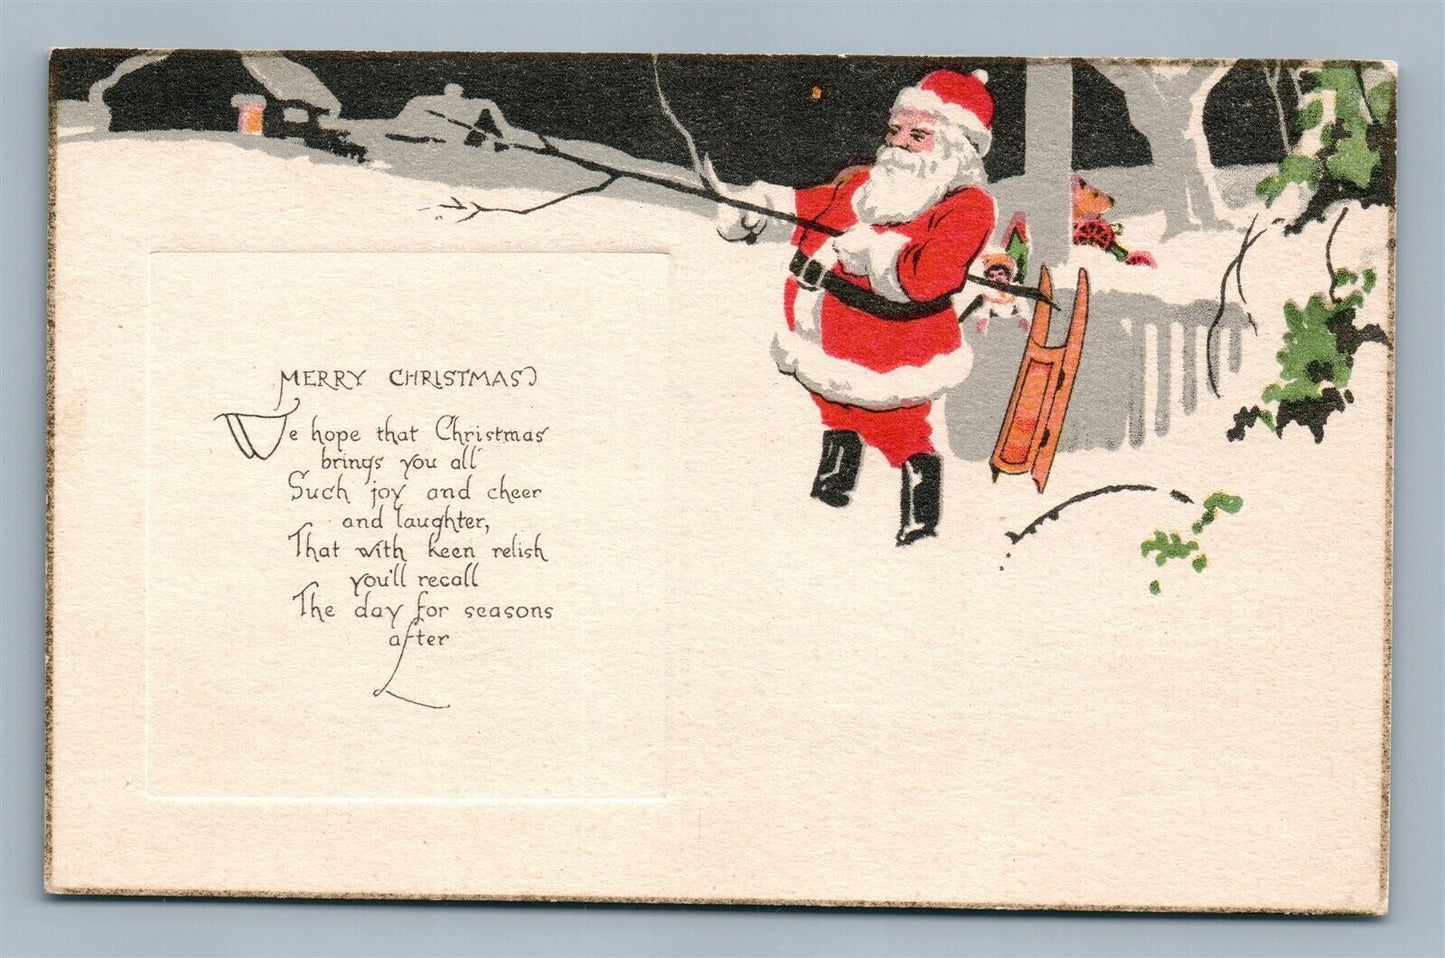 MERRY CHRISTMAS
We hope that Christmas
brings you all
Such joy and cheer
and laughter,
That with keen relish
you'll recall
The day for seasons
after